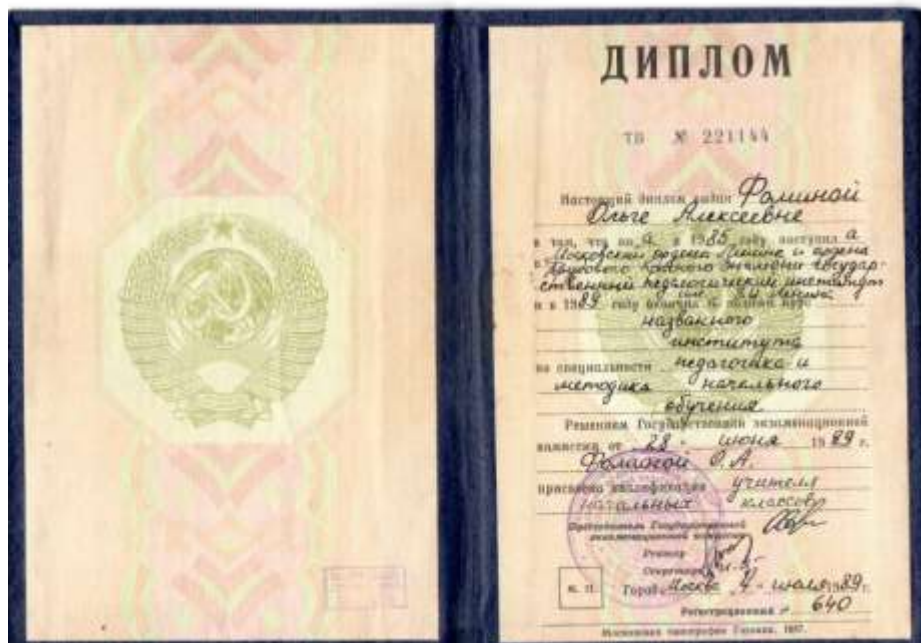 ДИПЛОМ
ТВ № 221144
Настоящий диплом выдан Фоминой
Ольге Алексеевне
в том, что он а в 1985 году поступил а
в Московский ордена Ленина и ордена
Трудового Красного Знамени государ-
ственный педагогический институт
им. В.И. Ленина
и в 1989 году окончил а полный курс
названного
института
по специальности педагогика и
методика начального
обучения
Решением Государственной экзаменационной
комиссии от 28 июня 1989 г.
Фоминой О.А.
присвоена квалификация учителя
начальных классов
Председатель Государственной
экзаменационной комиссии
Ректор
Секретарь
М. П.
Город Москва 4 июля 1989 г.
Регистрационный № 640
Московская типография Гознака. 1987.